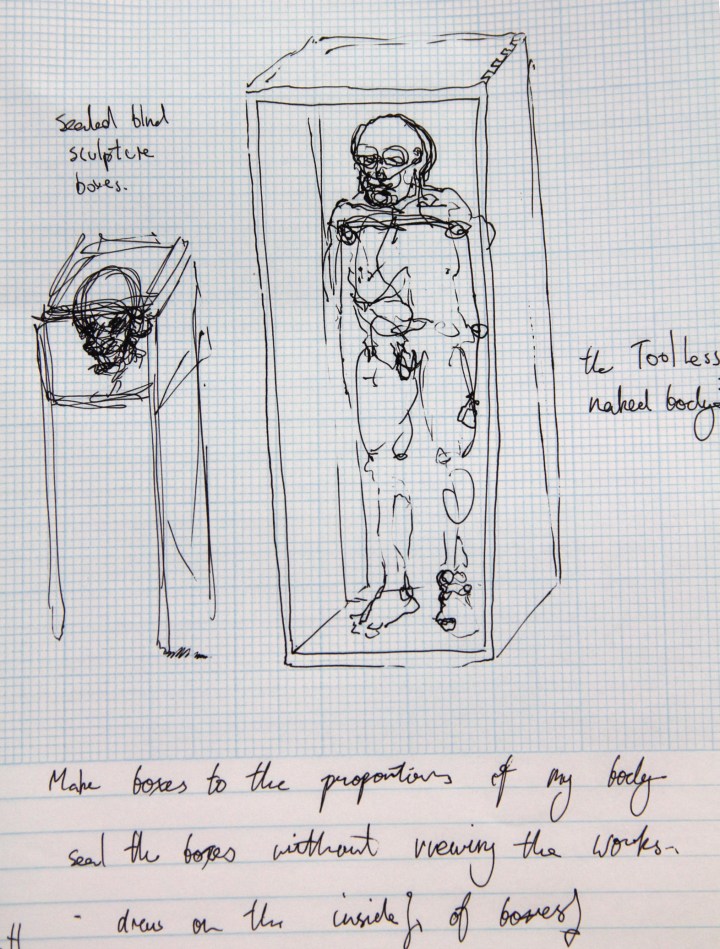 sealed blind
sculpture
boxes.
the Toolless
naked body
Make boxes to the proportions of my body
seal the boxes without viewing the works.
- draw on the inside of boxes